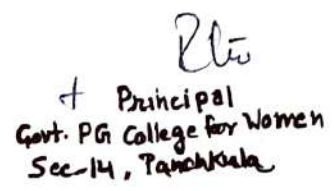 Principal
Govt. PG College for Women
Sec-14, Panchkula